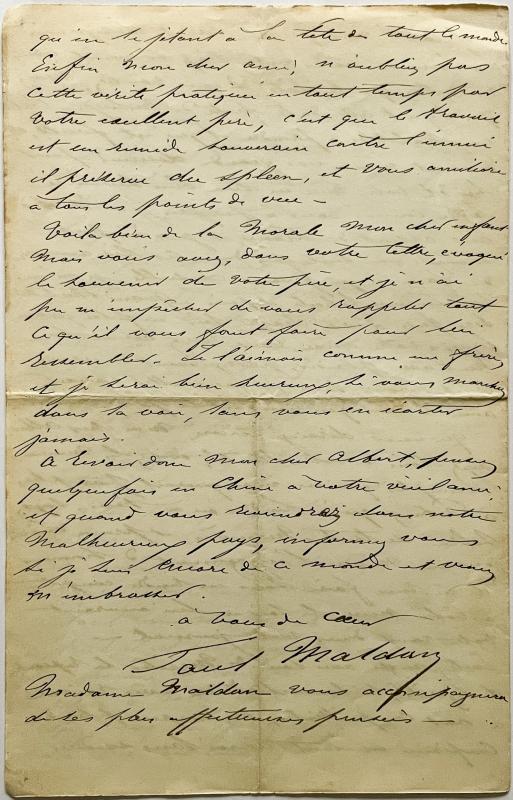 qu'en se jetant à la tête de tout le monde
Enfin mon cher ami, n'oubliez pas
cette vérité pratiquée en tout temps par
votre excellent père, c'est que le travail
est un remède souverain contre l'ennui
il préserve du spleen, et vous améliore
à tous les points de vue –
Voilà bien de la morale mon cher enfant
Mais vous avez, dans votre lettre, évoqué
le souvenir de votre père, et je n'ai
pu m'empêcher de vous rappeler tout
ce qu'il vous faut faire pour lui
ressembler. Je l'aimais comme un frère
et je serai bien heureux, si vous marchez
dans sa voie, sans vous en écarter
jamais.
à revoir donc mon cher Albert, pensez
quelquefois en Chine à votre vieil ami,
et quand vous reviendrez dans notre
Malheureux pays, informez vous
si je suis encore de ce monde et venez
m'embrasser.
à vous de cœur
Paul Maldan
Madame Maldan vous accompagnera
de ses plus affectueuses pensées –